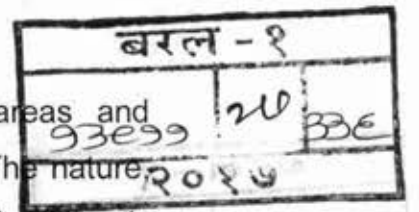 बरल - १
areas and
१३६११ ३३६
The nature
२०१७